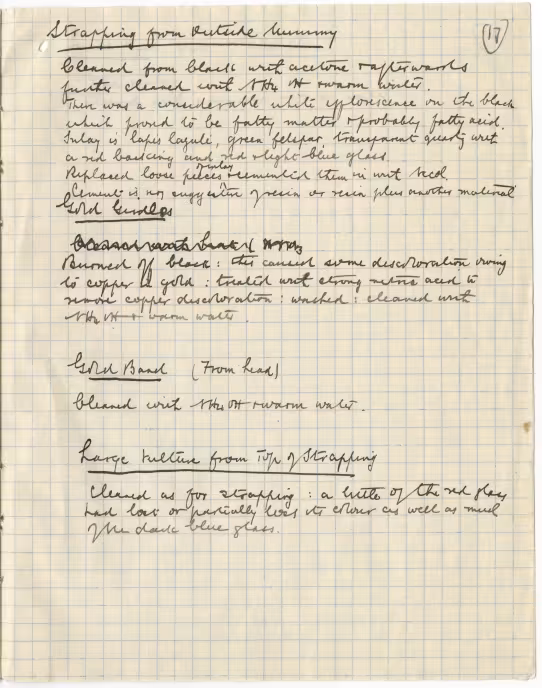 Strapping from Outside Mummy
17
Cleaned from black with acetone & afterwards
further cleaned with NH4 OH & warm water.
There was a considerable white efflorescence on the black
which proved to be fatty matter & probably fatty acid.
Inlay is lapis lazuli, green felspar, transparent quartz with
a red backing and red & light blue glass.
Replaced loose pieces inlay & cemented them in with
Cement is suggestive of resin or resin plus another material
Gold Girdles
Burned off black: this caused some discoloration owing
to copper in gold: treated with strong nitric acid to
remove copper discoloration: washed: cleaned with
NH4 OH & warm water.
Gold Band (From head)
Cleaned with NH4 OH & warm water.
Large Vulture from Top of Strapping
Cleaned as for strapping: a little of the red glass
had lost or partially lost its colour as well as much
of the dark blue glass.